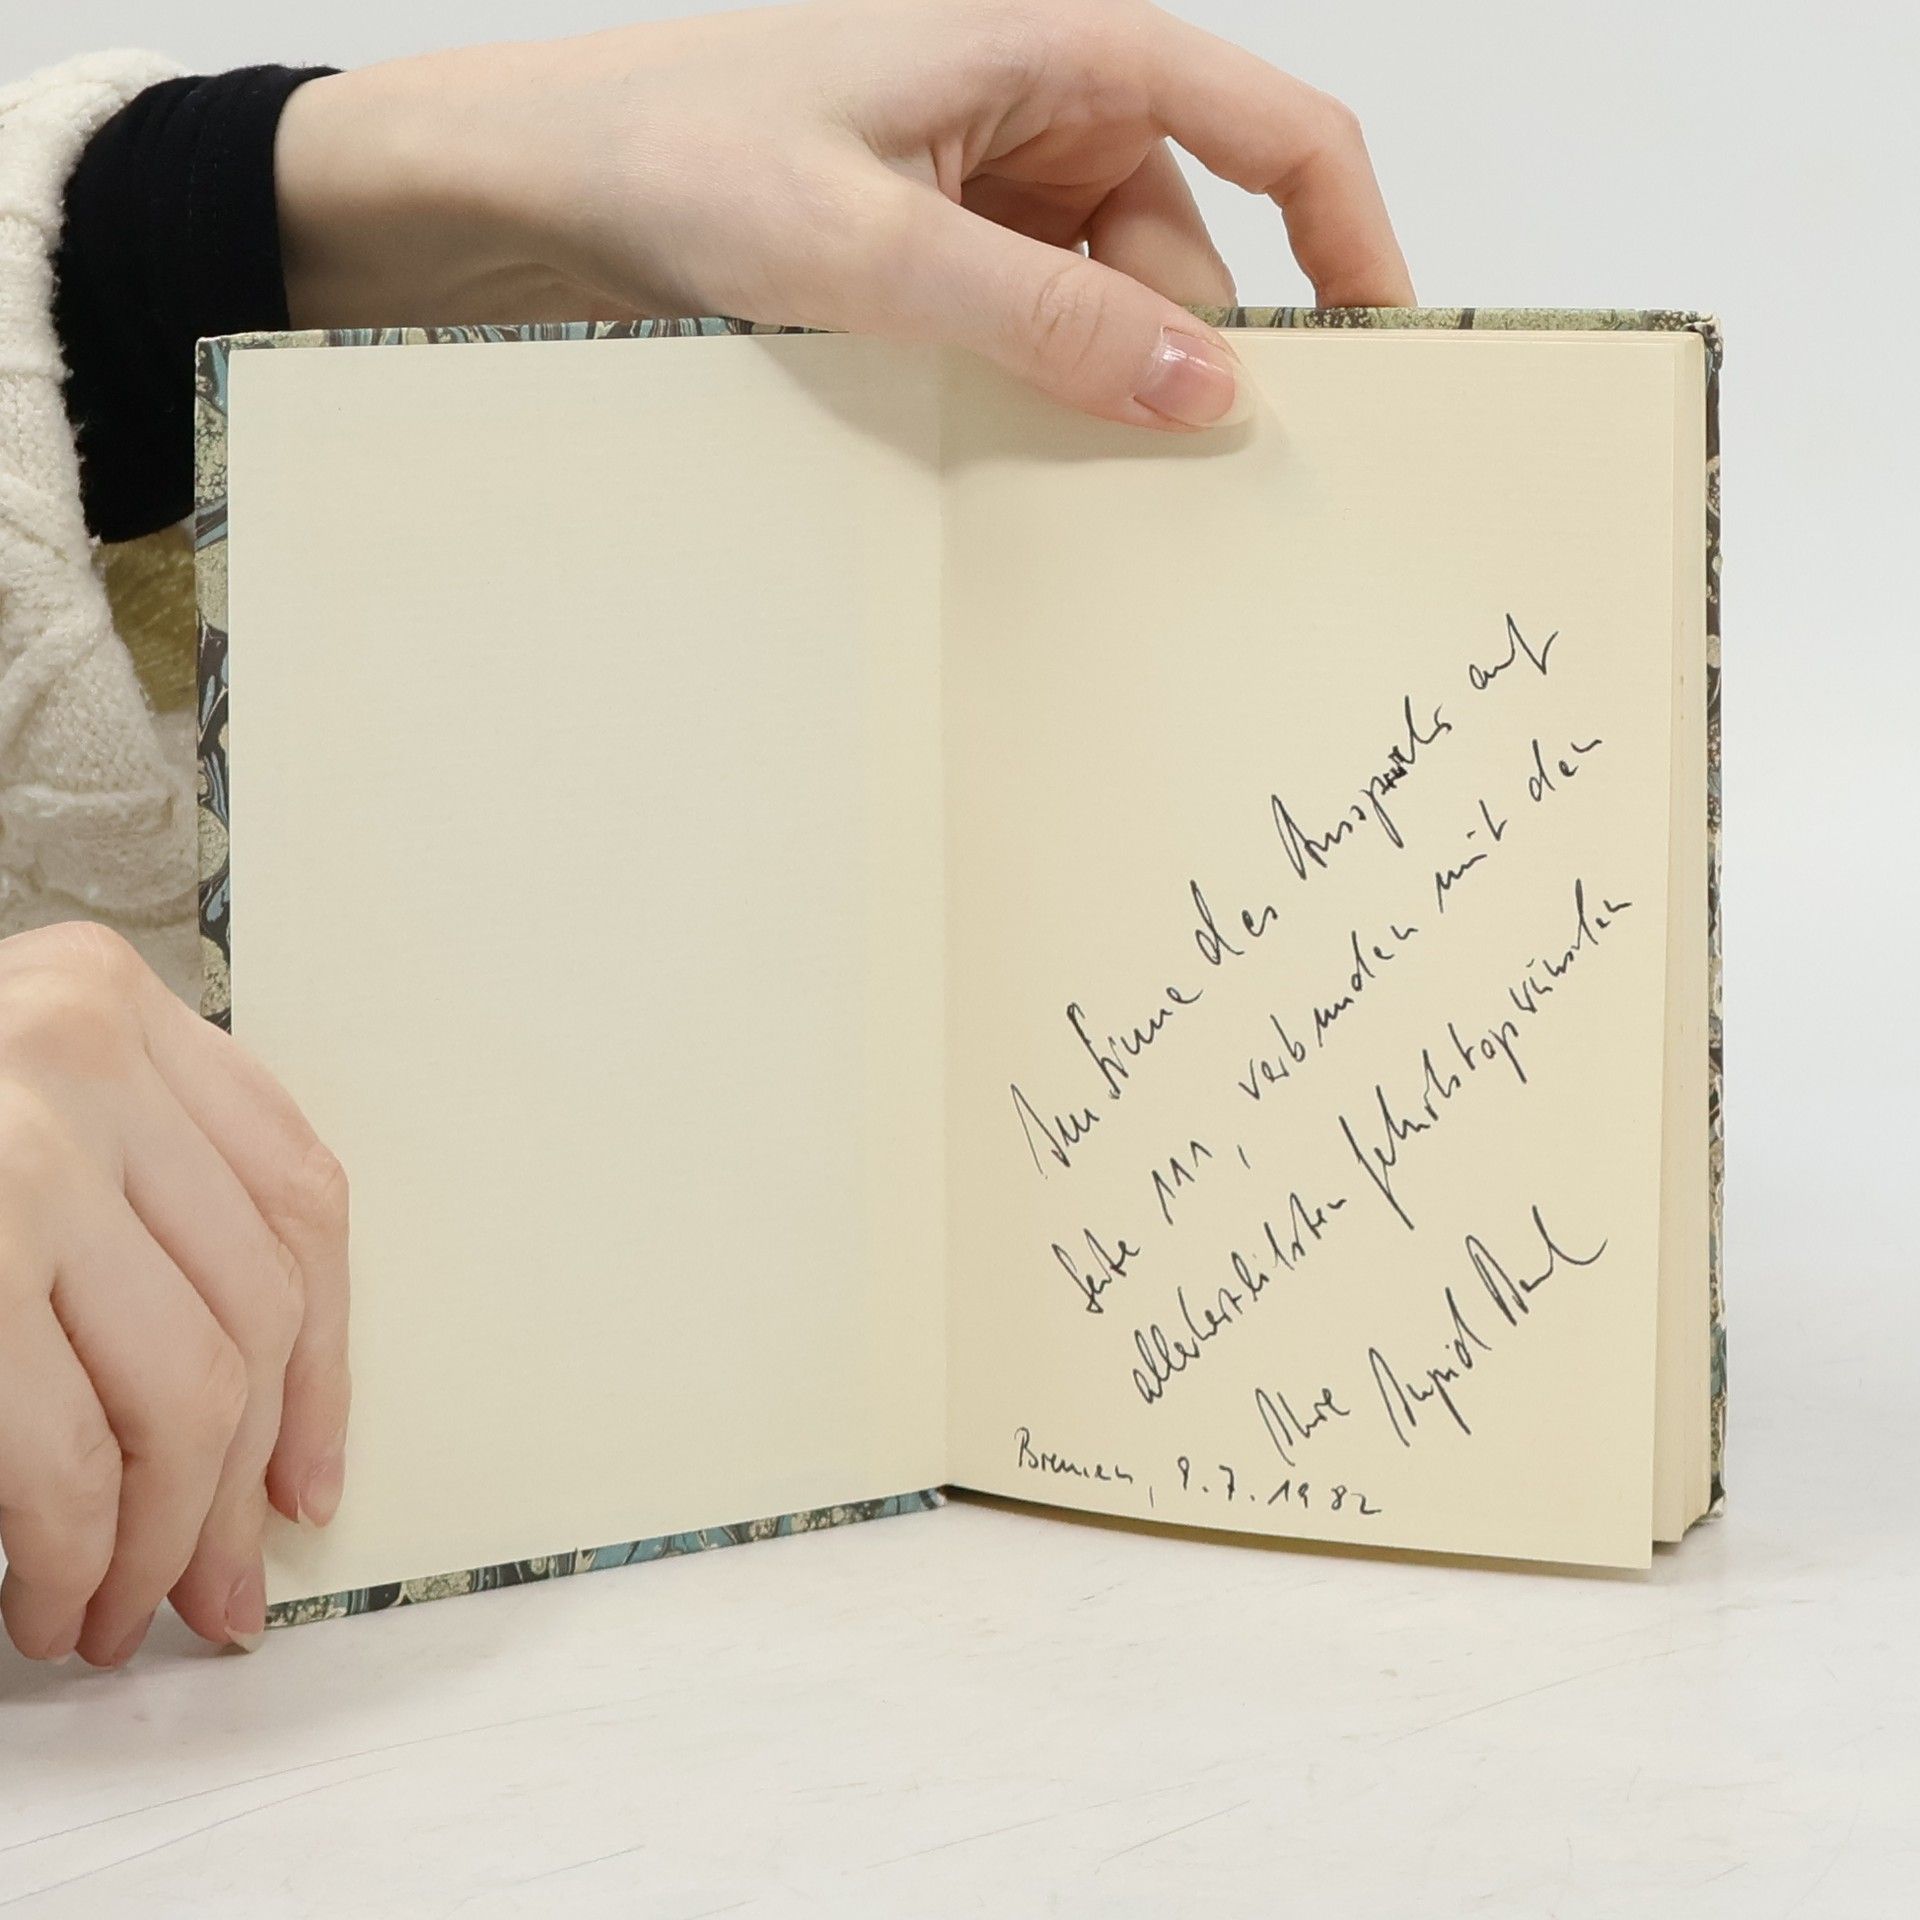 Im Sinne des Ausspruchs auf
Seite 111, verbunden mit den
allerherzlichsten Geburtstagswünschen
Ihre
Bremen, 8.7.1982